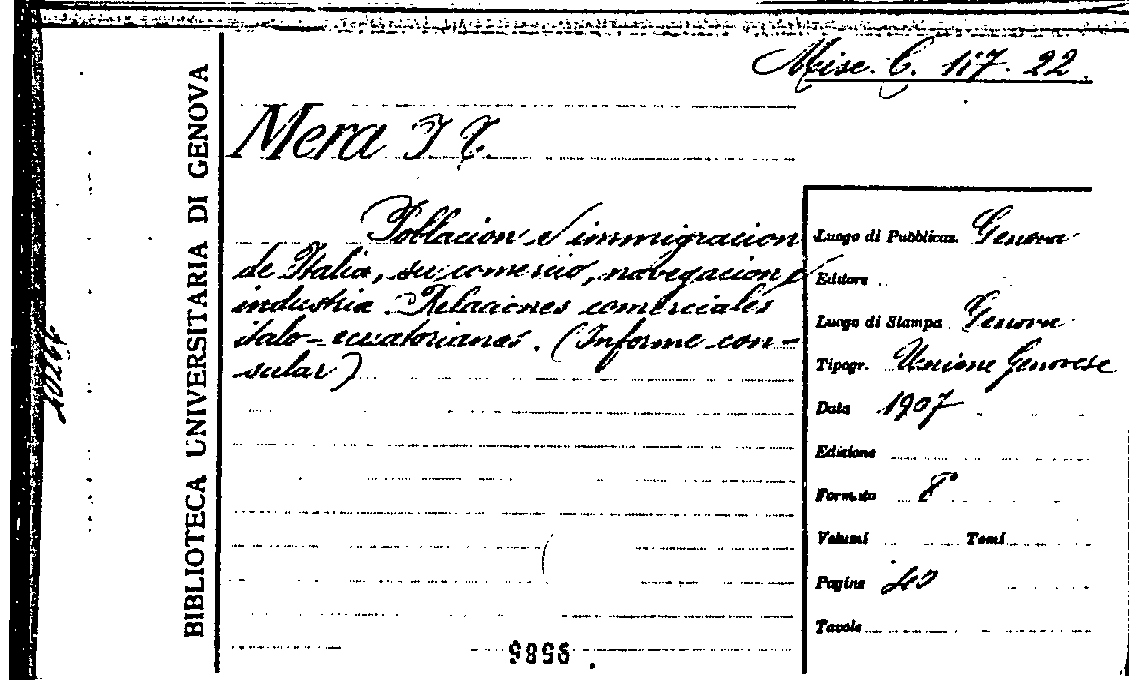 Misc. C. 117. 22
BIBLIOTECA UNIVERSITARIA DI GENOVA
Mera J T.
Poblacion e immigracion
de Italia, su comercio, navegacion e
industria. Relaciones comerciales
italo-ecuatorianas. (Informe con-
sular)
Luogo di Pubblicaz. Genova
Editore
Luogo di Stampa Genova
Tipogr. Unione Genovese
Data 1907
Edizione
Formato 8°
Volumi Tomi
Pagine 40
Tavole